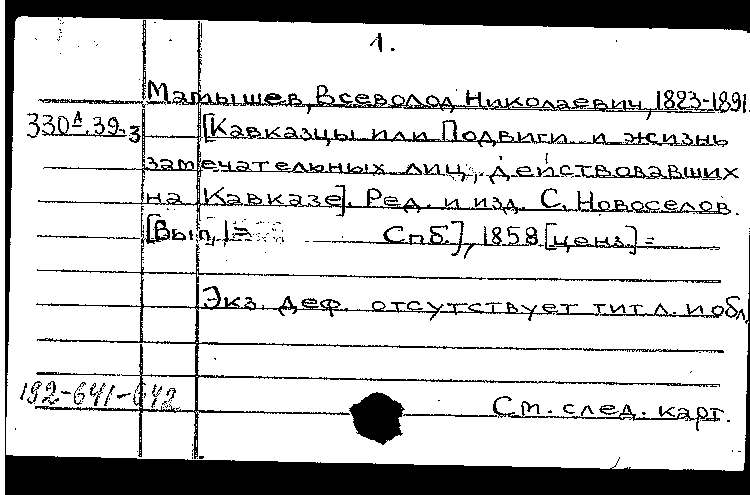 1.
Мамышев, Всеволод Николаевич, 1823-1891.
330А.39.3 [Кавказцы или Подвиги и жизнь
замечательных лиц, действовавших
на Кавказе]. Ред. и изд. С. Новоселов.
[Вып. 1= Спб.], 1858 [ценз.]=
Экз. деф. отсутствует тит л. и обл.
192-641-642 См. след. карт.